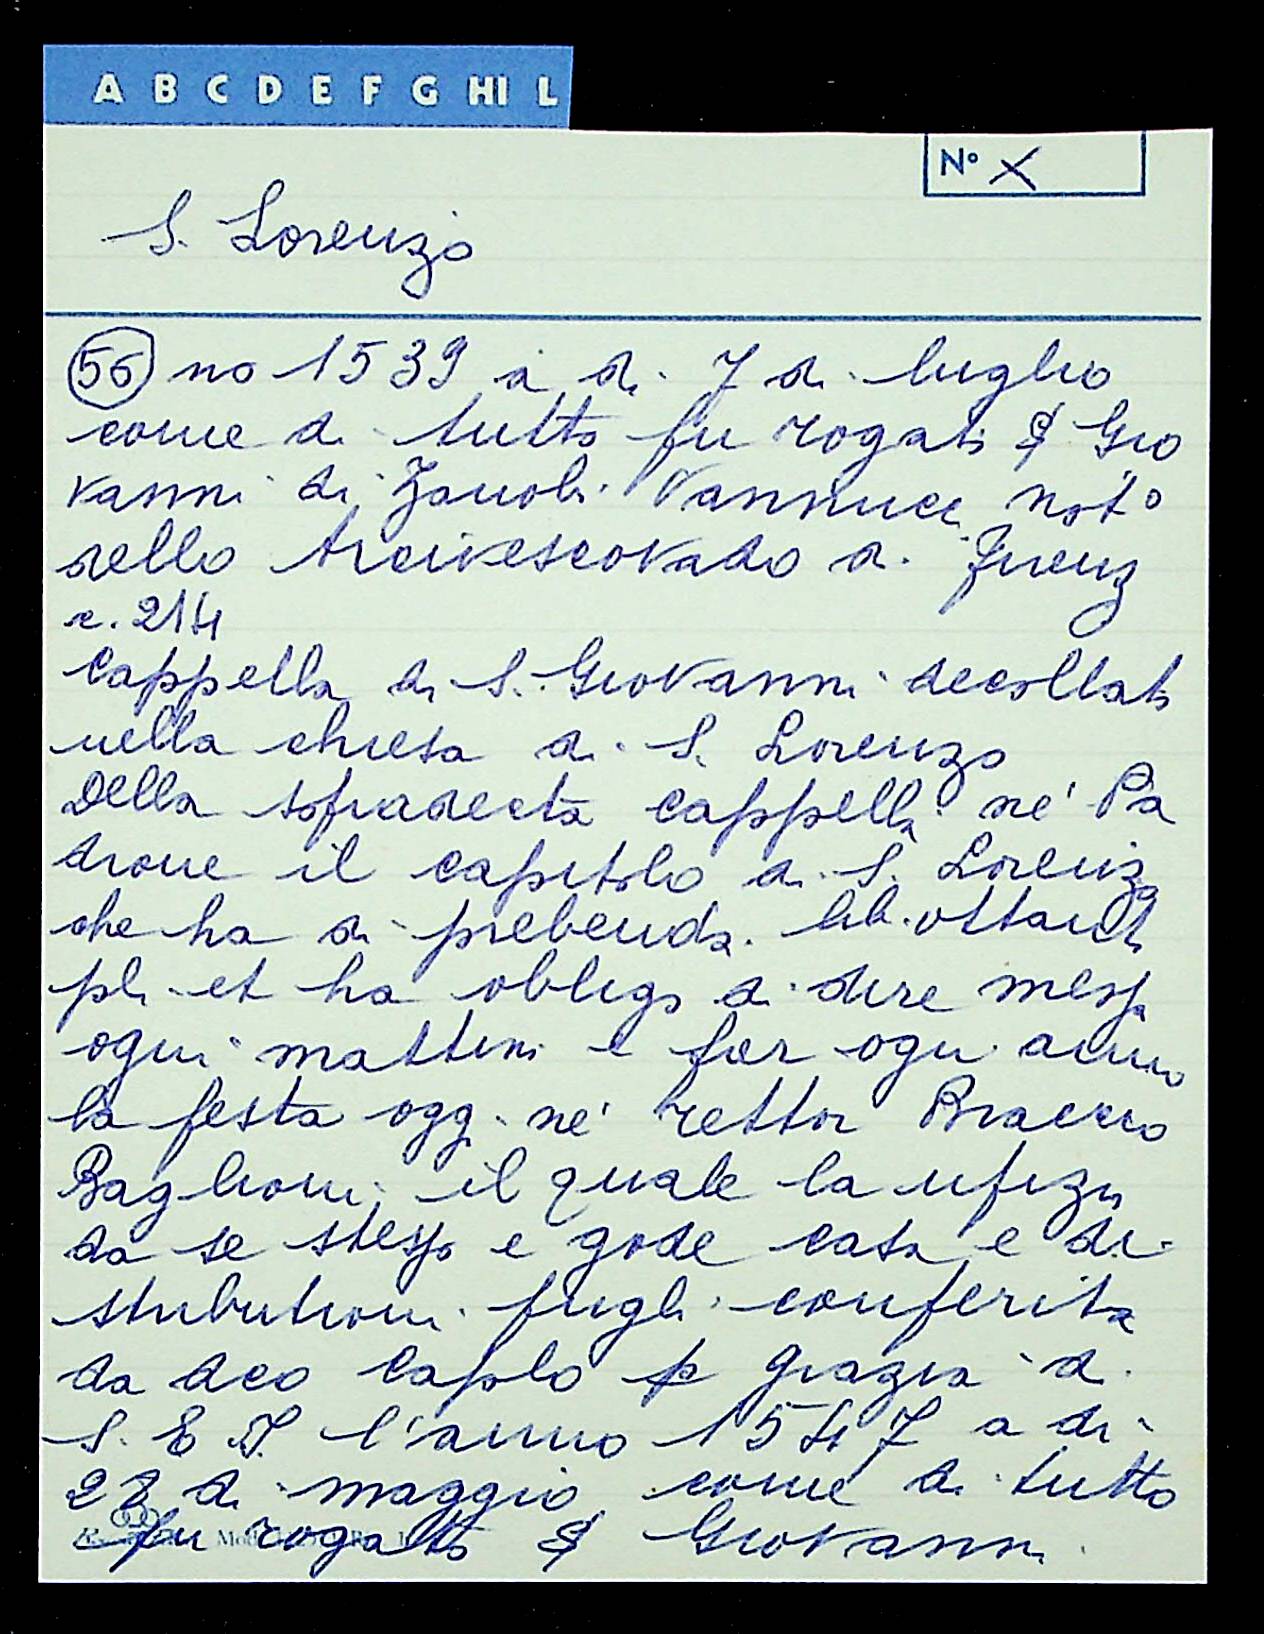 A B C D E F G HI L
Nº X
S. Lorenzo
56 no 1539 a di 7 di luglio
come di tutto fu rogato S Gio
vanni di Zanobi Vannucci noto
dello Arcivescovado di Firenz
c. 214
Cappella di S. Giovanni decollato
nella chiesa di S. Lorenzo
Della sopradecta cappella né Pa
drone il capitolo di S. Lorenzo
che ha di prebenda lib. ottanta
pli et ha obligo di dire messa
ogni mattina e far ogni anno
la festa oggi né rettor Braccio
Baglioni il quale la ufizia
da se stesso e gode casa e di
stributioni fugli conferita
da dco caplo p grazia di
S. E. I. l'anno 1547 a di
di maggio come di tutto
fu rogato S Giovanni